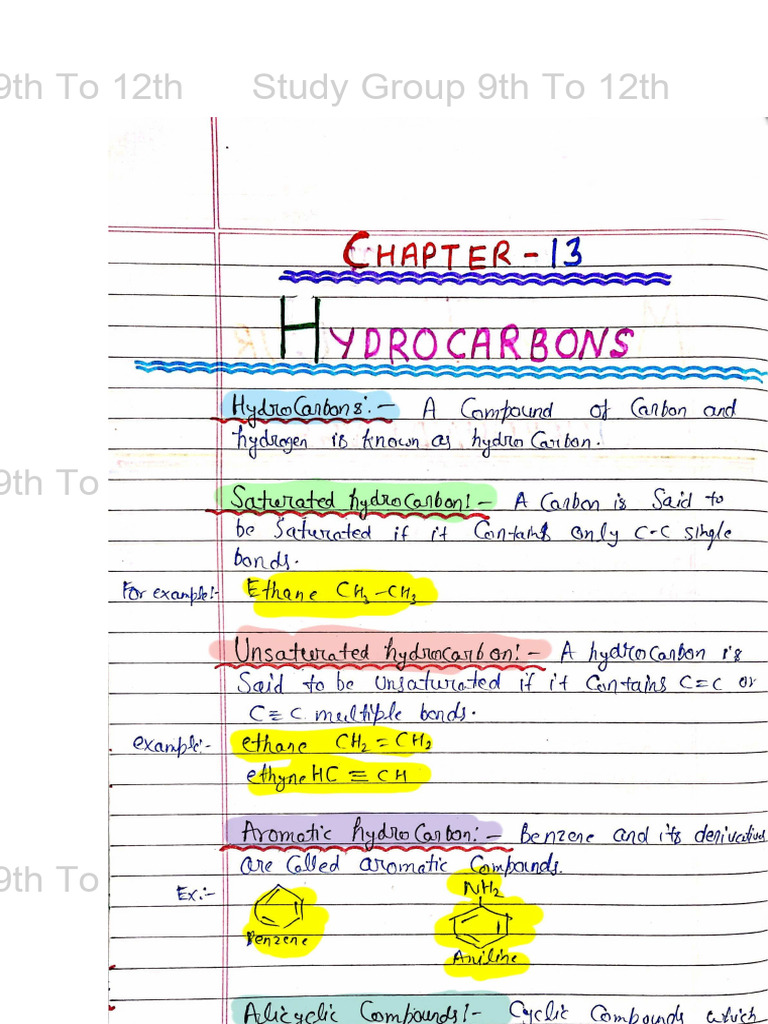 9th To 12th Study Group 9th To 12th
CHAPTER-13
HYDROCARBONS
HydroCarbons:- A Compound of Carbon and
hydrogen is known as hydroCarbon.
9th To
Saturated hydroCarbon!- A Carbon is Said to
be Saturated if it Contains only C-C single
bonds.
For example!- Ethane CH3-CH3
Unsaturated hydrocarbon!- A hydroCarbon is
Said to be Unsaturated if it Contains C=C or
C≡C multiple bonds.
example:- ethane CH2=CH2
ethyne HC≡CH
Aromatic hydroCarbon:- Benzene and its derivatives
9th To
are Called aromatic Compounds.
Ex:-
NH2
Benzene
Aniline
Alicyclic Compounds!- Cyclic Compounds which